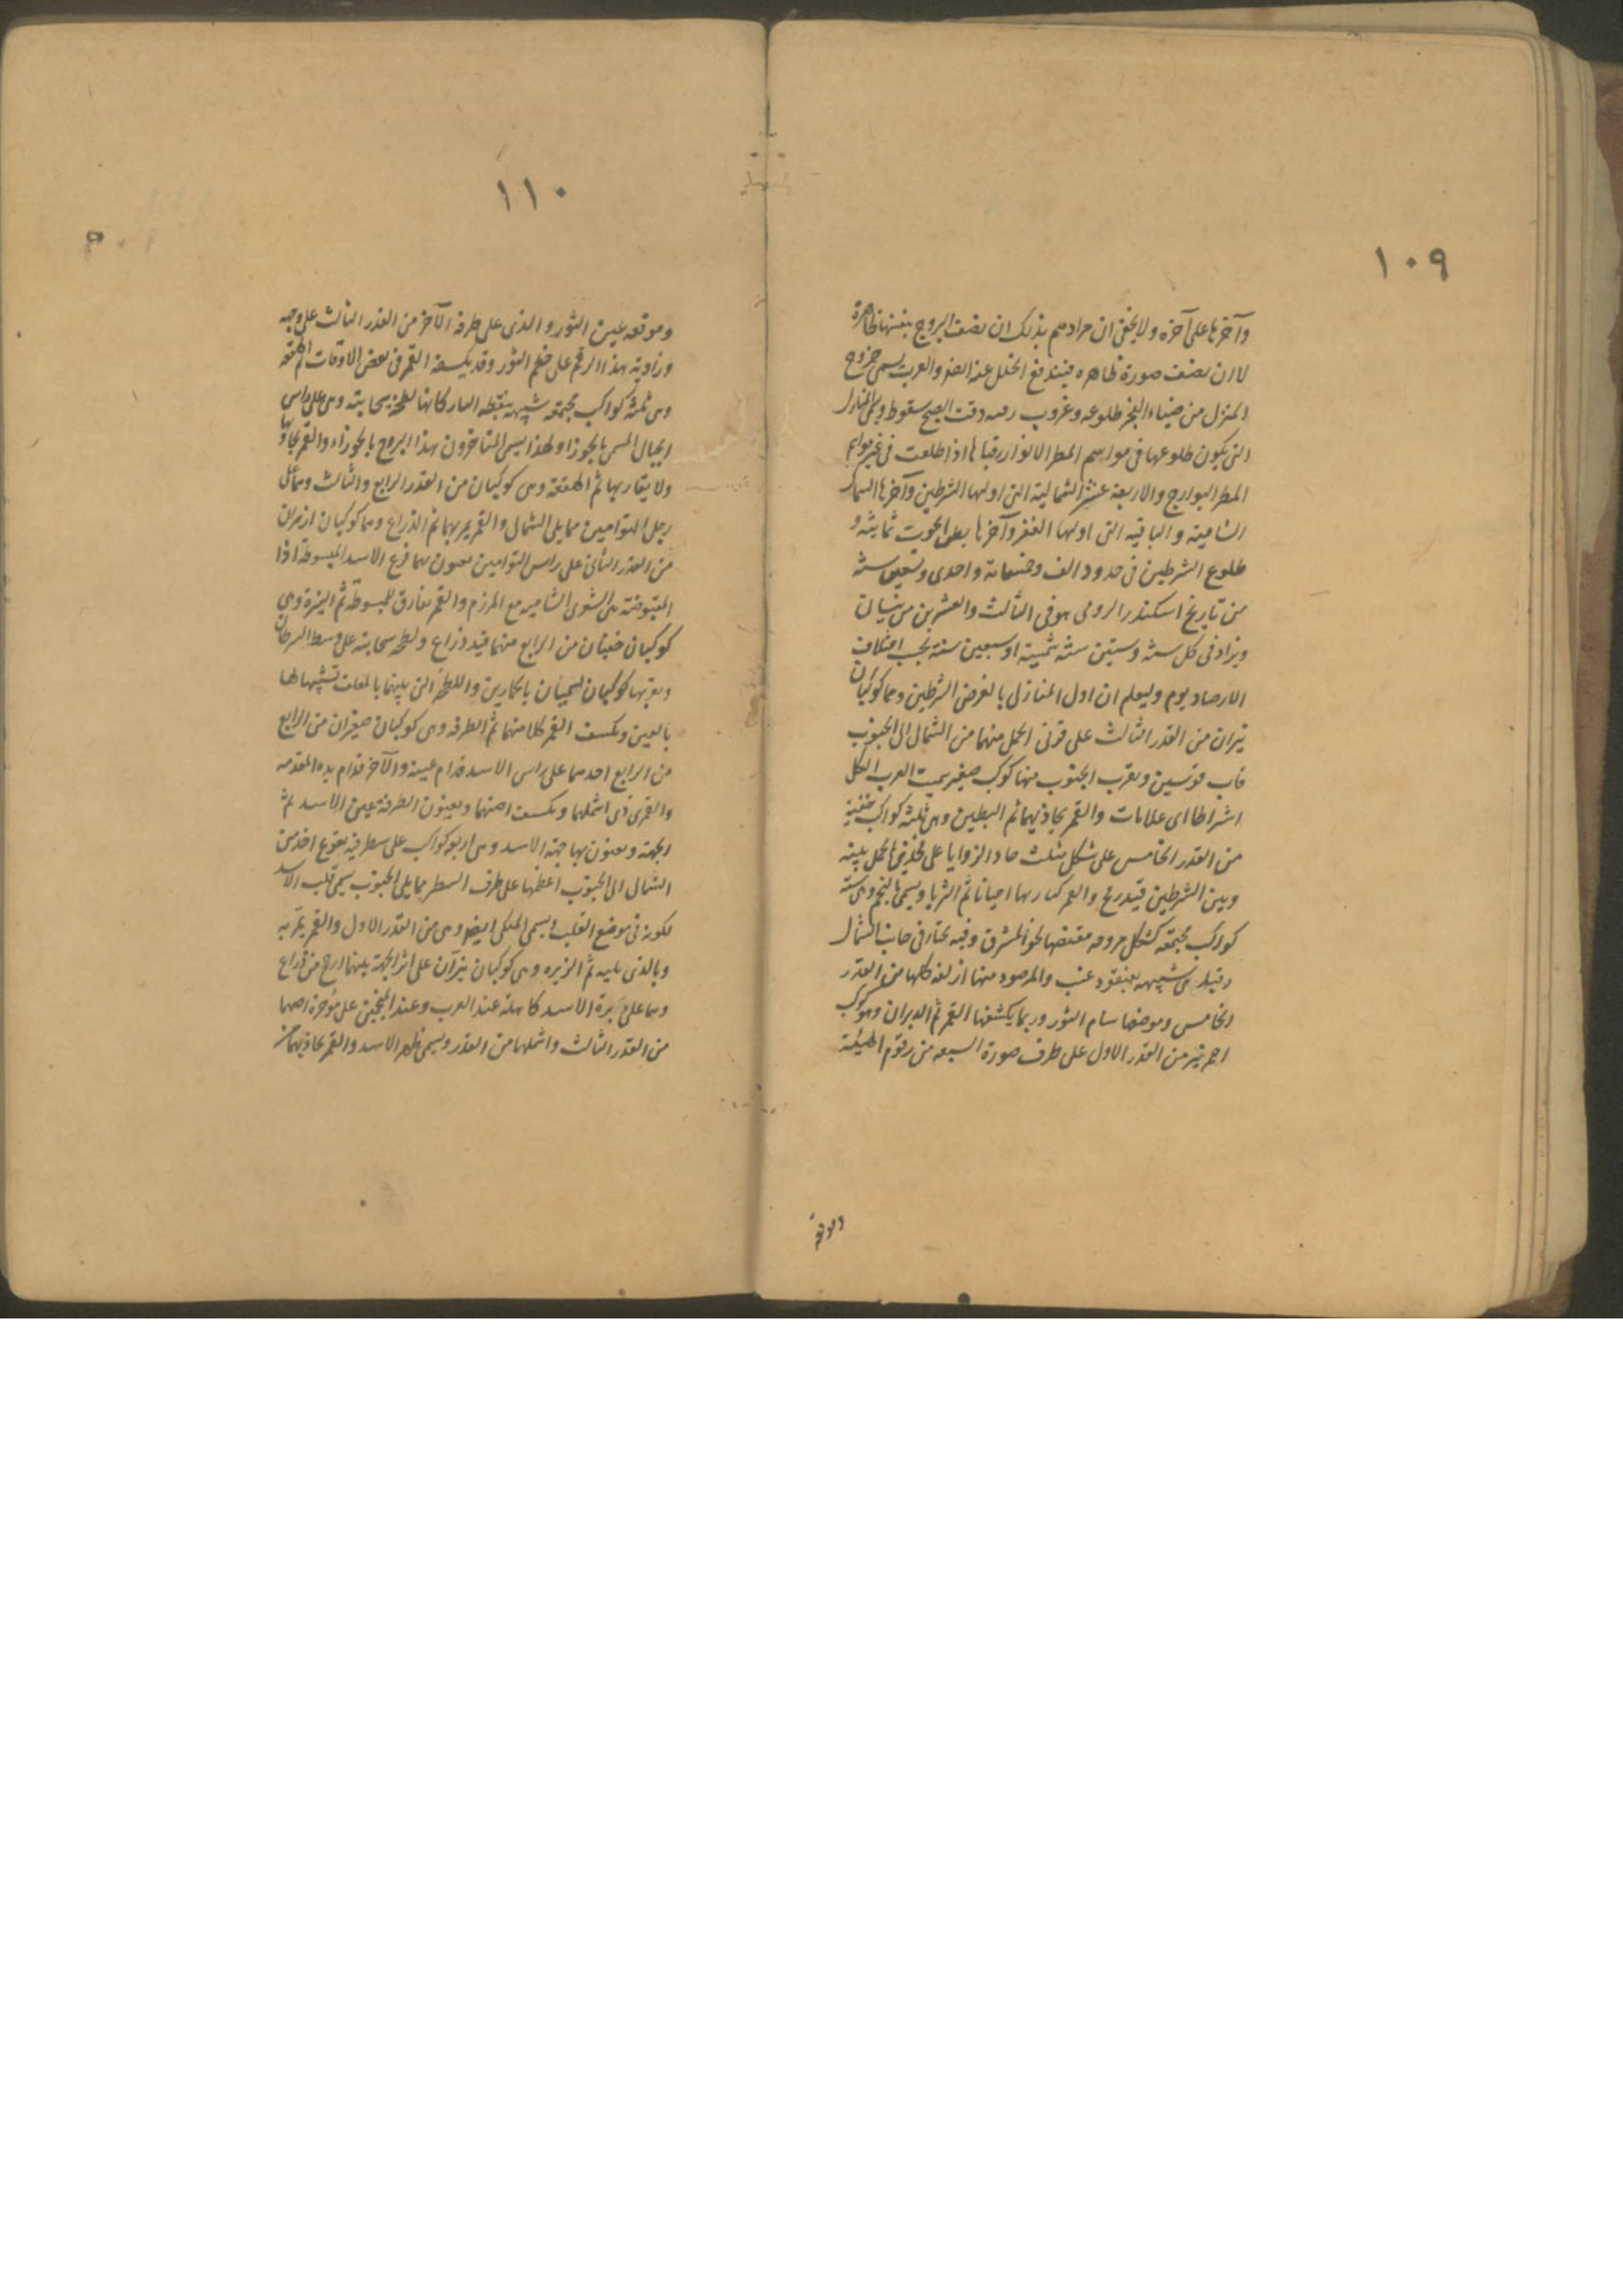 ١٠٩
وآخرها على آخره ولا يخفى ان مرادهم بذلك ان نصف البروج بنفسها ظاهرة
لا ان نصف صورة ظاهره فيندفع الخلل عنه والعرب يسمى خروج
المنزل من ضياء الفجر طلوعه وغروب رقيبه وقت الصبح سقوطه ويسمى المنازل
التى يكون طلوعها فى مواسم المطر الانواء ورقباءها اذا طلعت فى غير مواسم
المطر البوارح والاربعة عشر الشمالية التى اولها الشرطين وآخرها السماك
الشامية والباقية التى اولها الغفر وآخرها بطن الحوت يمانية و
طلوع الشرطين فى حدود الف وخمسمائة واحدى وتسعين سنة
من تاريخ اسكندر الرومى هو فى الثالث والعشرين من نيسان
ويزاد فى كل ستة وستين سنة شمسية او سبعين سنة بحسب اختلاف
الارصاد يوم وليعلم ان اول المنازل بالفرض الشرطين وهما كوكبان
نيران من القدر الثالث على قرنى الحمل منهما من الشمال الى الجنوب
قاب قوسين وبقرب الجنوب منها كوكب صغير سميت العرب الكل
اشراطا اى علامات والقمر يحاذيهما ثم البطين وهى ثلثة كواكب خفية
من القدر الخامس على شكل مثلث حاد الزوايا على فخذى الحمل بينه
وبين الشرطين قيد رمح والقمر احيانا ثم الثريا ويسمى بالنجم وهى ستة
كواكب مجتمعة كشكل مروحه مقبضها نحو المشرق وفيه تحدر فى جانب الشمال
وقيل هى شبيهه بعنقود عنب والمرصود منها اربعة كلها من القدر
الخامس وموضعها سنام الثور وربما يكسفها القمر ثم الدبران وهو كوكب
احمر نير من القدر الاول على طرف صورة السبعه من رقوم الهيئة
وموقعه
١١٠
وموقعه عين الثور والذى على طرفه الآخر من القدر الثالث على وجه
وزاوية هذا الرقم على خطم الثور وقد يكسفه القمر فى بعض الاوقات ثم الهقعة
وهى ثلثة كواكب مجتمعه شبيهه بنقطه الثاء كانها لطخة سحابية وهى على راس
الجبار المسمى بالجوزاء ولهذا يسمى المتأخرون هذا البروج بالجوزاء والقمر يحاذيها
ولا يقاربها ثم الهنعة وهى كوكبان من القدر الرابع والثالث وهما على
رجل التوامين مما يلى الشمال والقمر يمر بهما ثم الذراع وهما كوكبان ازهران
من القدر الثانى على راس التوامين يعنون بهما ذراع الاسد المبسوطة اذا
المقبوضة هى الشعرى الشامية مع المرزم والقمر يفارق المبسوطة ثم النثرة وهى
كوكبان خفيان من الرابع منهما قيد ذراع ولطخه سحابية على وسط السرطان
وبقربها كوكبان يسميان بالحمارين واللطخه التى بينهما بالمعلف تشبيها لها
بالعين ويكسف القمر كلا منهما ثم الطرفه وهى كوكبان صغيران من الرابع
من الرابع احدهما على راس الاسد قدام عينيه والآخر قدام يده المقدمه
والقمر يحاذى اشملهما ويكسف اجنبهما ويعنون بالطرفة عين الاسد ثم
الجبهة ويعنون بها جبهة الاسد وهى اربع كواكب على سطر فيه تعويج اخذ من
الشمال الى الجنوب اعظمها على طرف السطر مما يلى الجنوب يسمى قلب الاسد
لكونه فى موضع القلب ويسمى الملكى ايضا وهى من القدر الاول والقمر يمر به
وبالذى يليه ثم الزبره وهى كوكبان نيران على اثر الجبهة بينهما ارجح من ذراع
وهما على زبرة الاسد كاهله عند العرب وعند المنجمين على مؤخره احدهما
من القدر الثالث واشملهما من القدر ويسمى ظهر الاسد والقمر يحاذيهما